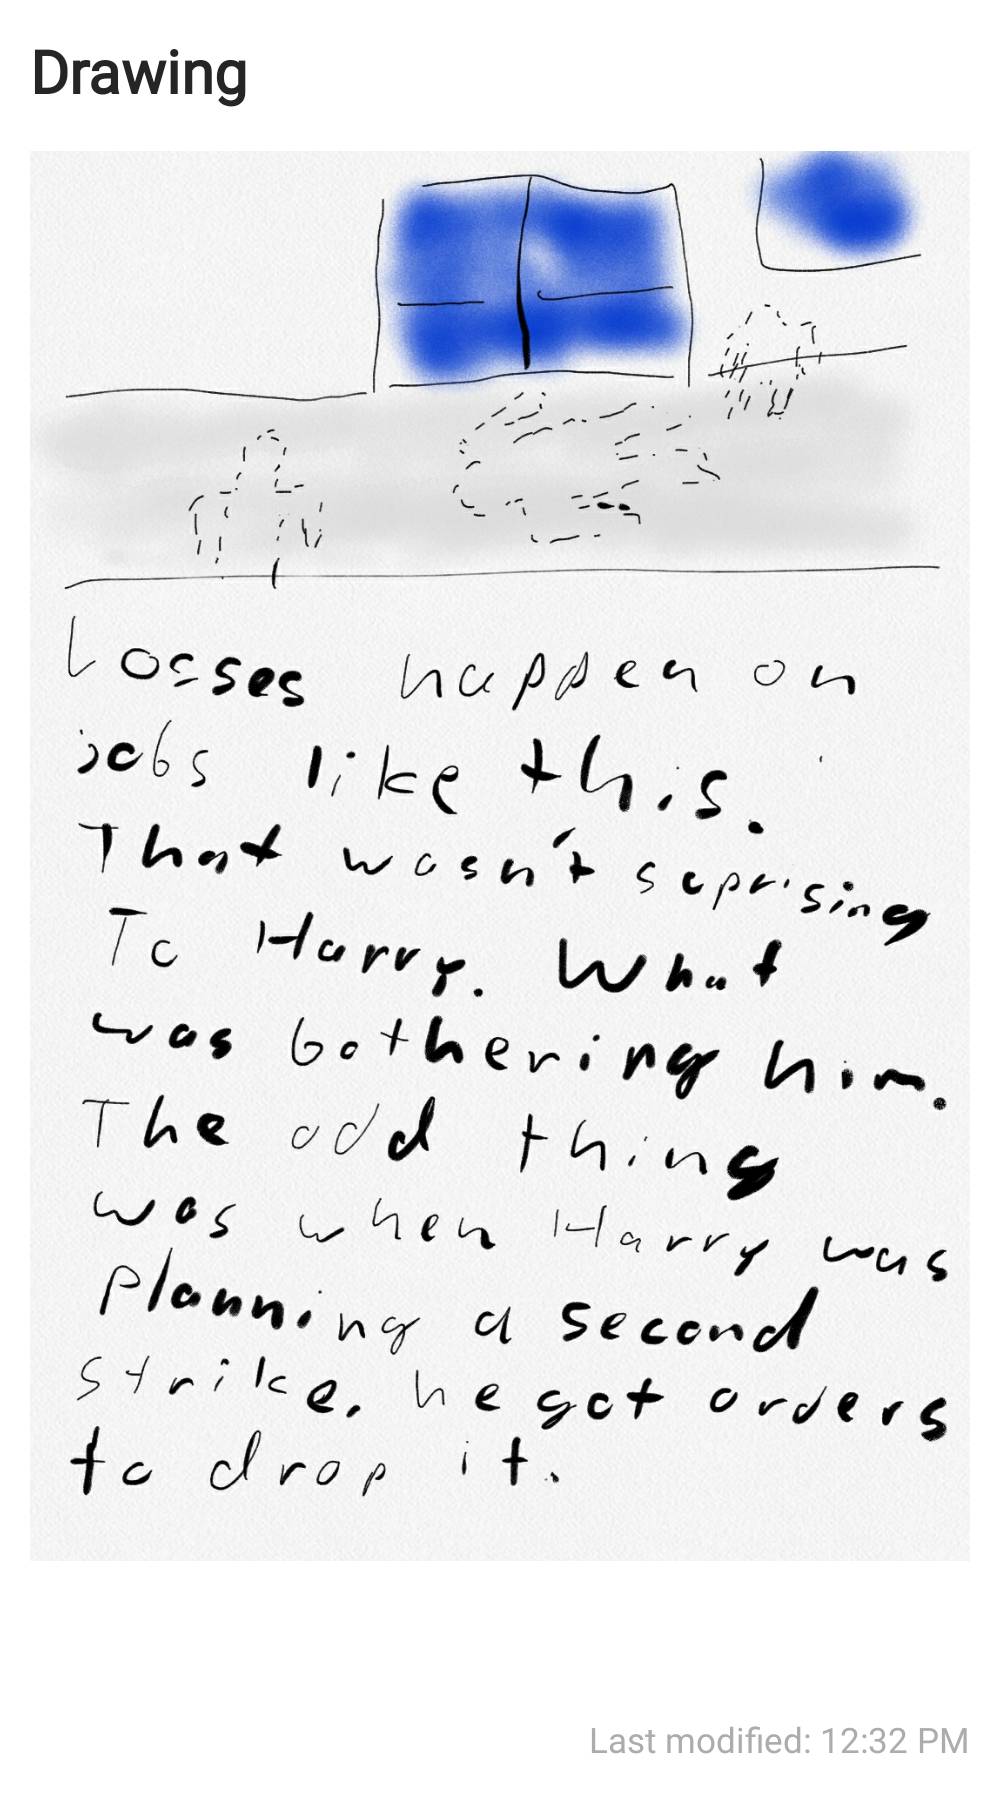 Drawing
Losses happen on
jobs like this.
That wasn't suprising
To Harry. What
was bothering him.
The odd thing
was when Harry was
Planning a second
strike, he got orders
to drop it.
Last modified: 12:32 PM